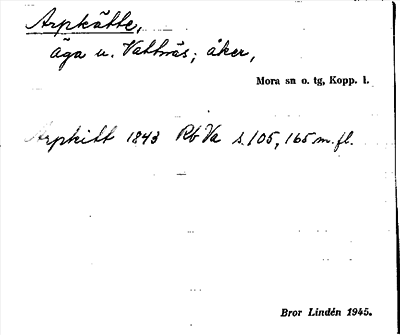 Arpkätte,
äga u. Vattnäs; åker,
Mora sn o. tg, Kopp. l.
Arpkitt 1843 Rb Va s. 105, 165 m. fl.
Bror Lindén 1945.